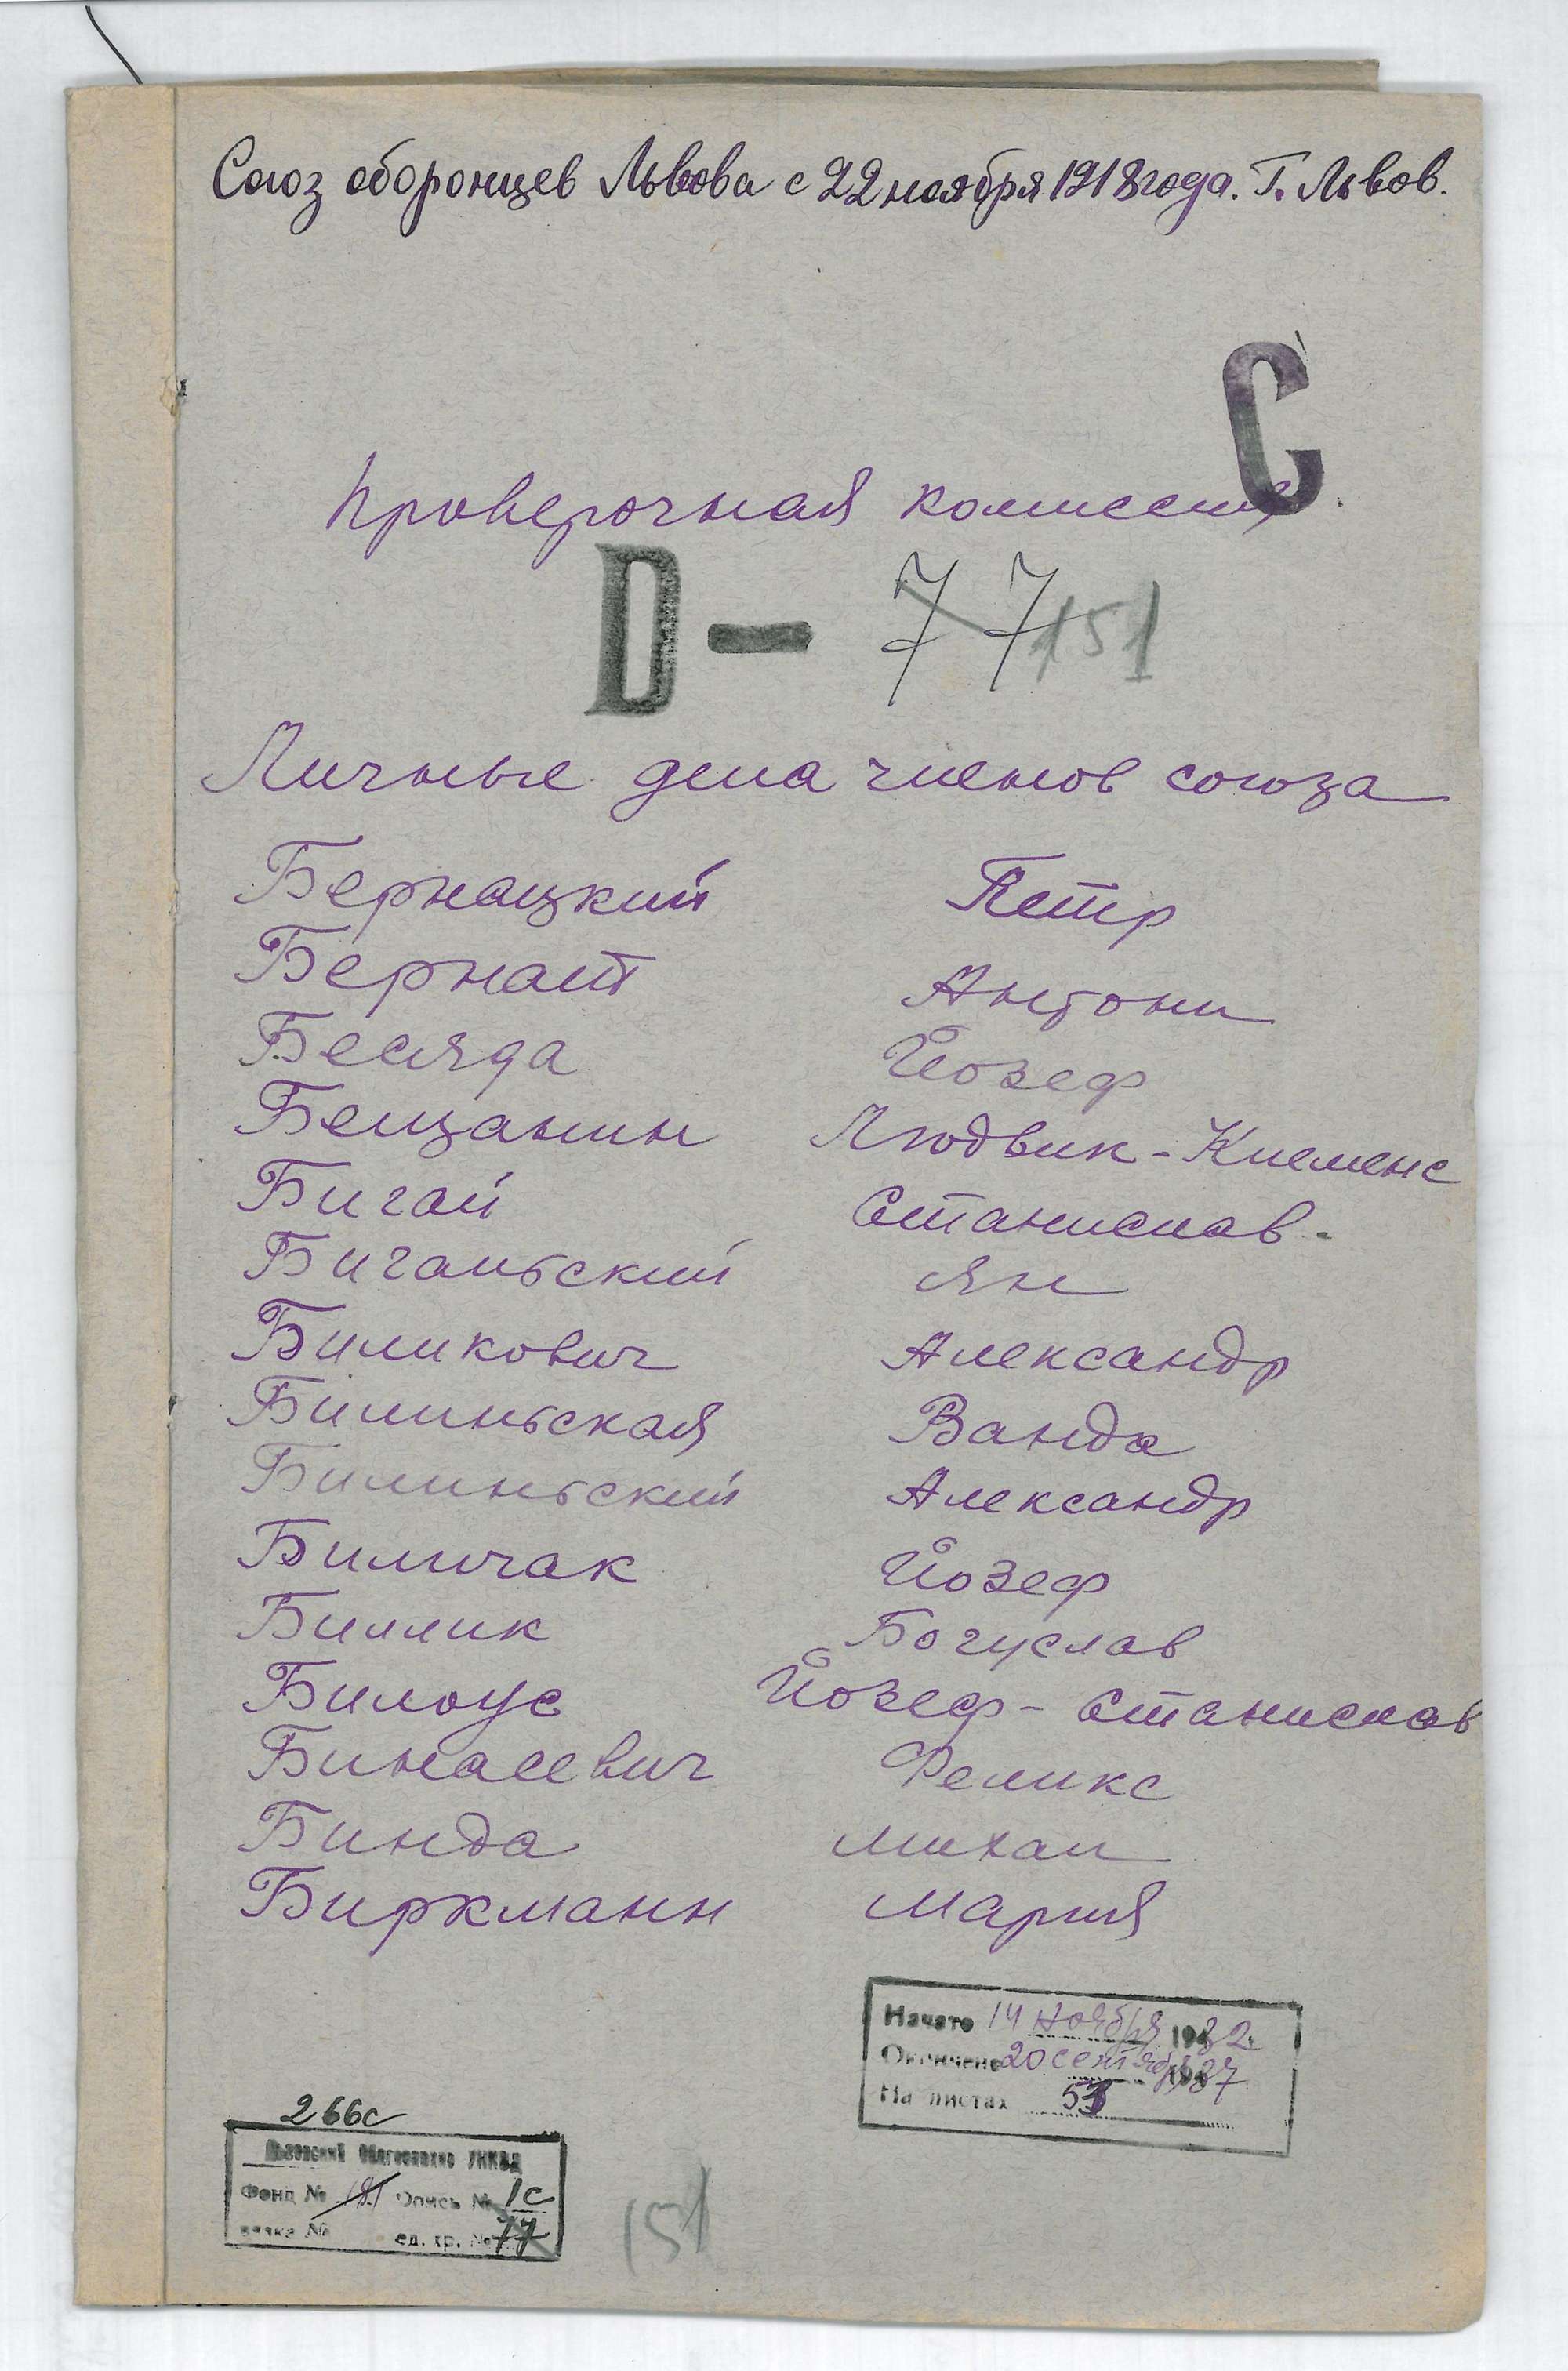 Союз оборонцев Львова с 22 ноября 1918 года. Г. Львов.
С
Проверочная комиссия.
D — 77 151
Личные дела членов союза
Бернацкий Петр
Бернат Антони
Бесяда Йозеф
Бещанин Людвик-Клеменс
Бигай Станислав.
Бигальский Ян
Биликович Александр
Билиньская Ванда
Билиньский Александр
Биличак Йозеф
Биллик Богуслав
Билоус Йозеф-Станислав
Бинасевич Феликс
Бинда Михал
Биркманн Мария
Начато 14 ноября 1932
Окончено 20 сентября 1937
На листах 53
266с
Львовский Облгосархив УНКВД
Фонд № 181 Опись № 1с
вязка № ед. хр. № 77
151